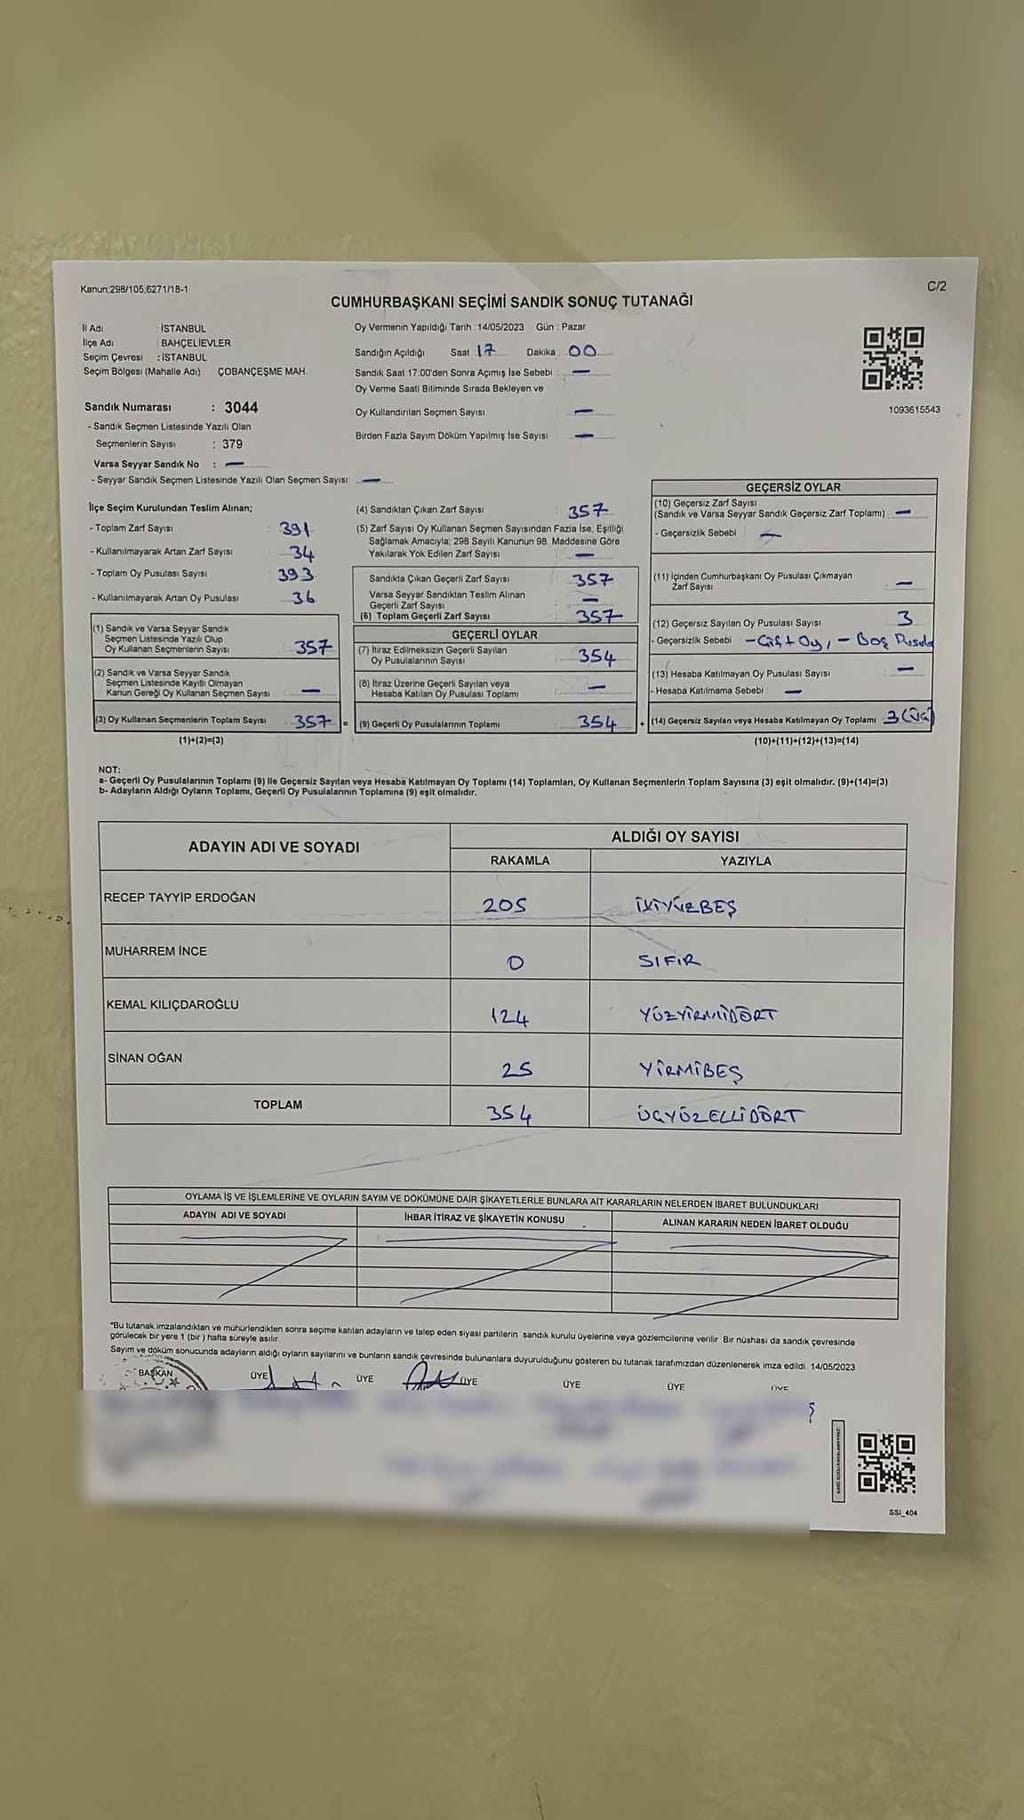 Kanun:298/105,6271/18-1
C/2
CUMHURBAŞKANI SEÇİMİ SANDIK SONUÇ TUTANAĞI
İl Adı : İSTANBUL
İlçe Adı : BAHÇELİEVLER
Seçim Çevresi : İSTANBUL
Seçim Bölgesi (Mahalle Adı) ÇOBANÇEŞME MAH.
Sandık Numarası : 3044
- Sandık Seçmen Listesinde Yazılı Olan
Seçmenlerin Sayısı : 379
Varsa Seyyar Sandık No : —
- Seyyar Sandık Seçmen Listesinde Yazılı Olan Seçmen Sayısı —
Oy Vermenin Yapıldığı Tarih : 14/05/2023 Gün : Pazar
Sandığın Açıldığı Saat 17 Dakika 00
Sandık Saat 17:00'den Sonra Açımış İse Sebebi : —
Oy Verme Saati Bitiminde Sırada Bekleyen ve
Oy Kullandırılan Seçmen Sayısı —
Birden Fazla Sayım Döküm Yapılmış İse Sayısı —
1093615543
İlçe Seçim Kurulundan Teslim Alınan;
- Toplam Zarf Sayısı 391
- Kullanılmayarak Artan Zarf Sayısı 34
- Toplam Oy Pusulası Sayısı 393
- Kullanılmayarak Artan Oy Pusulası 36
(1) Sandık ve Varsa Seyyar Sandık
Seçmen Listesinde Yazılı Olup
Oy Kullanan Seçmenlerin Sayısı 357
(2) Sandık ve Varsa Seyyar Sandık
Seçmen Listesinde Kayıtlı Olmayan
Kanun Gereği Oy Kullanan Seçmen Sayısı —
(3) Oy Kullanan Seçmenlerin Toplam Sayısı 357 =
(1)+(2)=(3)
(4) Sandıktan Çıkan Zarf Sayısı 357
(5) Zarf Sayısı Oy Kullanan Seçmen Sayısından Fazla İse, Eşitliği
Sağlamak Amacıyla, 298 Sayılı Kanunun 98. Maddesine Göre
Yakılarak Yok Edilen Zarf Sayısı —
Sandıkta Çıkan Geçerli Zarf Sayısı 357
Varsa Seyyar Sandıktan Teslim Alınan
Geçerli Zarf Sayısı —
(6) Toplam Geçerli Zarf Sayısı 357
GEÇERLİ OYLAR
(7) İtiraz Edilmeksizin Geçerli Sayılan
Oy Pusulalarının Sayısı 354
(8) İtiraz Üzerine Geçerli Sayılan veya
Hesaba Katılan Oy Pusulası Toplamı —
(9) Geçerli Oy Pusulalarının Toplamı 354 +
GEÇERSİZ OYLAR
(10) Geçersiz Zarf Sayısı
(Sandık ve Varsa Seyyar Sandık Geçersiz Zarf Toplamı) —
- Geçersizlik Sebebi —
(11) İçinden Cumhurbaşkanı Oy Pusulası Çıkmayan
Zarf Sayısı —
(12) Geçersiz Sayılan Oy Pusulası Sayısı 3
- Geçersizlik Sebebi - Çift Oy, - Boş Pusula
(13) Hesaba Katılmayan Oy Pusulası Sayısı —
- Hesaba Katılmama Sebebi —
(14) Geçersiz Sayılan veya Hesaba Katılmayan Oy Toplamı 3 (üç)
(10)+(11)+(12)+(13)=(14)
NOT:
a- Geçerli Oy Pusulalarının Toplamı (9) ile Geçersiz Sayılan veya Hesaba Katılmayan Oy Toplamı (14) Toplamları, Oy Kullanan Seçmenlerin Toplam Sayısına (3) eşit olmalıdır. (9)+(14)=(3)
b- Adayların Aldığı Oyların Toplamı, Geçerli Oy Pusulalarının Toplamına (9) eşit olmalıdır.
ADAYIN ADI VE SOYADI ALDIĞI OY SAYISI
RAKAMLA YAZIYLA
RECEP TAYYİP ERDOĞAN 205 İKİYÜZBEŞ
MUHARREM İNCE 0 SIFIR
KEMAL KILIÇDAROĞLU 124 YÜZYİRMİDÖRT
SİNAN OĞAN 25 YİRMİBEŞ
TOPLAM 354 ÜÇYÜZELLİDÖRT
OYLAMA İŞ VE İŞLEMLERİNE VE OYLARIN SAYIM VE DÖKÜMÜNE DAİR ŞİKAYETLERLE BUNLARA AİT KARARLARIN NELERDEN İBARET BULUNDUKLARI
ADAYIN ADI VE SOYADI İHBAR İTİRAZ VE ŞİKAYETİN KONUSU ALINAN KARARIN NEDEN İBARET OLDUĞU
"Bu tutanak imzalandıktan ve mühürlendikten sonra seçime katılan adayların ve talep eden siyasi partilerin sandık kurulu üyelerine veya gözlemcilerine verilir. Bir nüshası da sandık çevresinde
görülecek bir yere 1 (bir) hafta süreyle asılır.
Sayım ve döküm sonucunda adayların aldığı oyların sayılarını ve bunların sandık çevresinde bulunanlara duyurulduğunu gösteren bu tutanak tarafımızdan düzenlenerek imza edildi. 14/05/2023
BAŞKAN ÜYE ÜYE ÜYE ÜYE ÜYE ÜYE
SSI_404